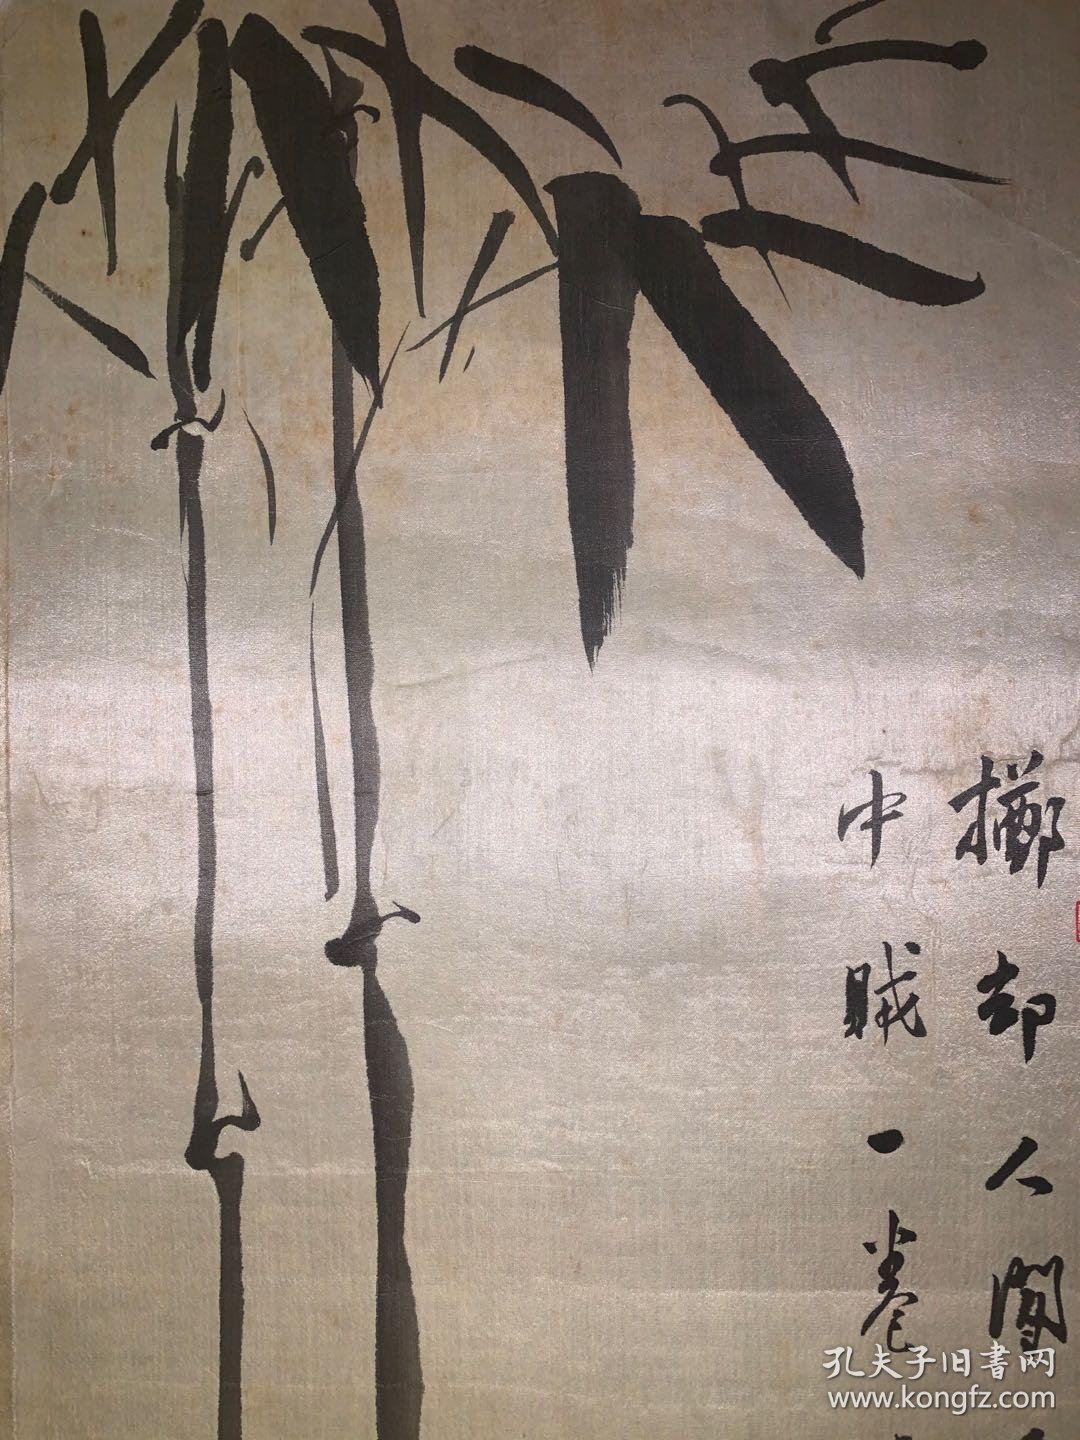 擲却人間
中賊一卷
孔夫子旧書网
www.kongfz.com